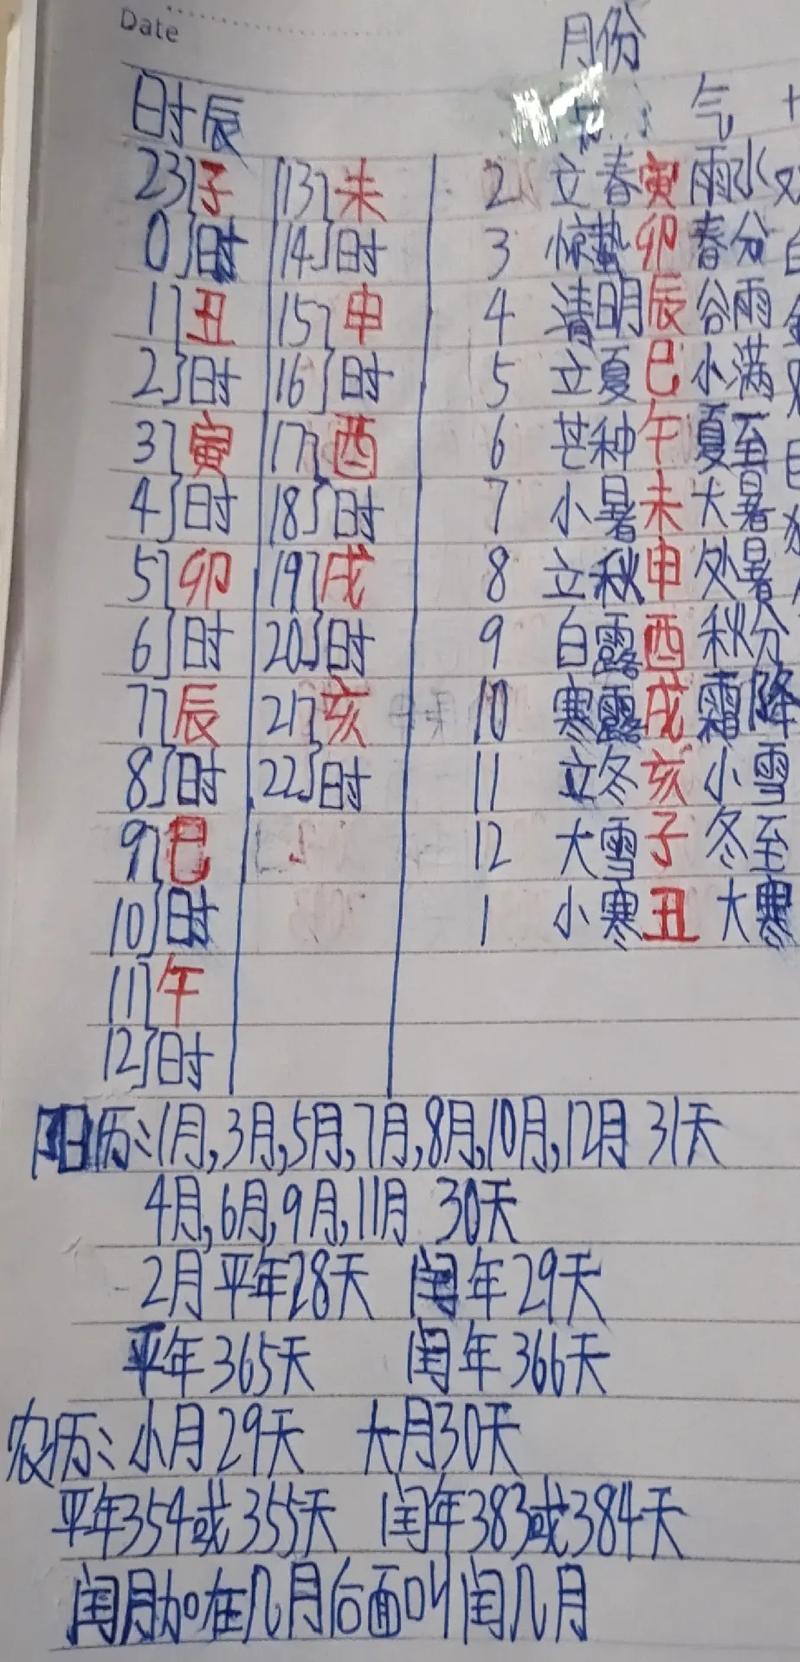 Date
月份
时辰 气
23 子 13 未 2 立春 寅 雨水
0 时 14 时 3 惊蛰 卯 春分
1 丑 15 申 4 清明 辰 谷雨
2 时 16 时 5 立夏 巳 小满
3 寅 17 酉 6 芒种 午 夏至
4 时 18 时 7 小暑 未 大暑
5 卯 19 戌 8 立秋 申 处暑
6 时 20 时 9 白露 酉 秋分
7 辰 21 亥 10 寒露 戌 霜降
8 时 22 时 11 立冬 亥 小雪
9 巳 12 大雪 子 冬至
10 时 1 小寒 丑 大寒
11 午
12 时
阳历:1月,3月,5月,7月,8月,10月,12月 31天
4月,6月,9月,11月 30天
2月平年28天 闰年29天
平年365天 闰年366天
农历:小月29天 大月30天
平年354或355天 闰年383或384天
闰月加在几月后面叫闰几月